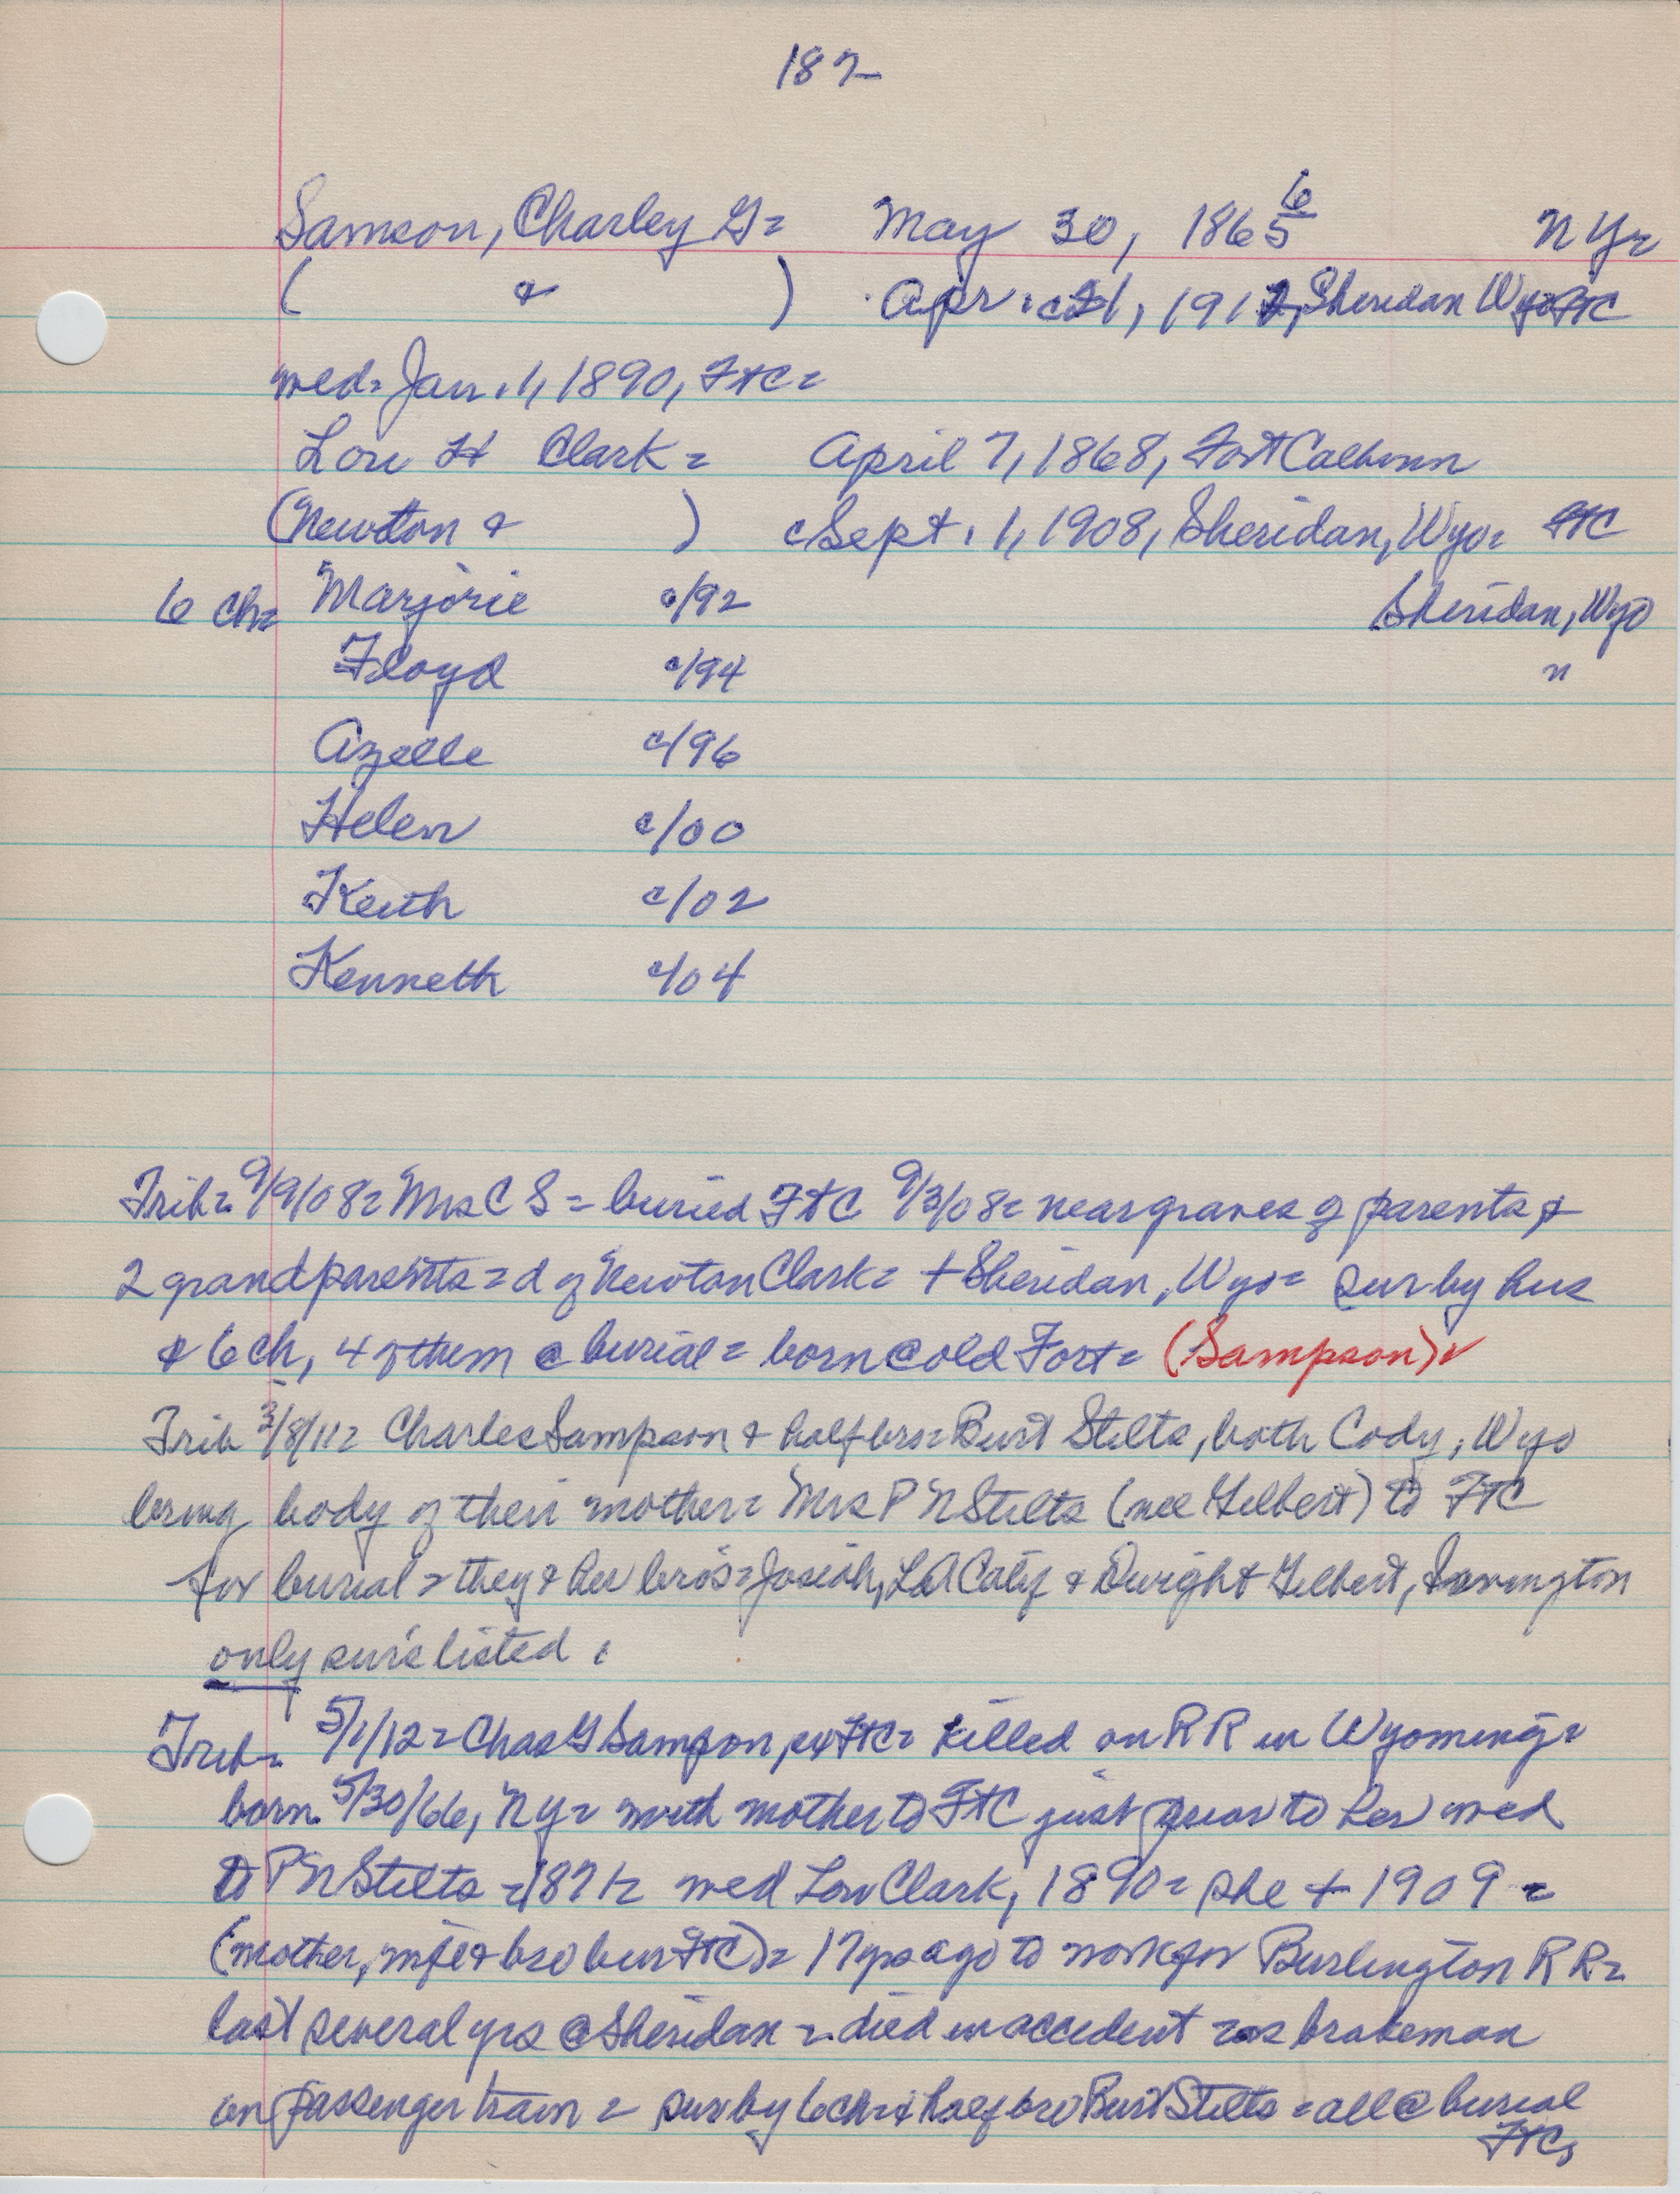 187
Samson, Charley G= May 30, 1865 6 N Y=
( & ) Apr. c21, 1912, Sheridan Wyo FTC
wed= Jan. 1, 1890, FtC=
Lou H Clark= April 7, 1868, Fort Calhoun
(Newton & ) cSept. 1, 1908, Sheridan, Wyo= FTC
6 ch= Marjorie c/92 Sheridan, Wyo
Floyd c/94 "
Azelle c/96
Helen c/00
Keith c/02
Kenneth c/04
Trib= 9/9/08= Mrs C S= buried FtC 9/3/08= near graves of parents &
2 grandparents= d of Newton Clark= + Sheridan, Wyo= sur by hus
& 6 ch, 4 of them @ burial= born @ old Fort= (Sampson)✓
Trib 3/8/11= Charles Sampson & half bro= Burt Stilts, both Cody, Wyo
bring body of their mother= Mrs P N Stilts (nee Gilbert) to FTC
for burial= they & her bros= Josiah, LA Calif & Dwight Gilbert,
only surs listed.
Trib= 5/1/12= Chas G Sampson, ex FTC= killed on RR in Wyoming=
born 5/30/66, N Y= with mother to FTC just prior to her wed
to P N Stilts= 1871= wed Lou Clark, 1890= she + 1909=
(mother, wife & bro bur FtC)= 17 yrs ago to work for Burlington RR=
last several yrs @ Sheridan= died in accident = as brakeman
on passenger train= sur by 6 ch= & half bro Burt Stilts= all @ burial
FTC,